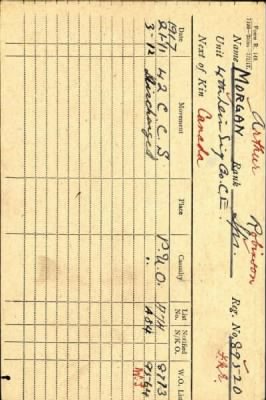 Form R. 149.
Arthur Robinson
Name MORGAN Rank Spr. Reg. No. 89520
Unit 4th Div Sig Co. C.E. F.R.S.
Next of Kin Canada
Date Movement Place Casualty List No. Notified N/K O. W.O. List
1917
21-11 42 C C S P.U.O. A74 8773
3-12 Discharged " A84 9564